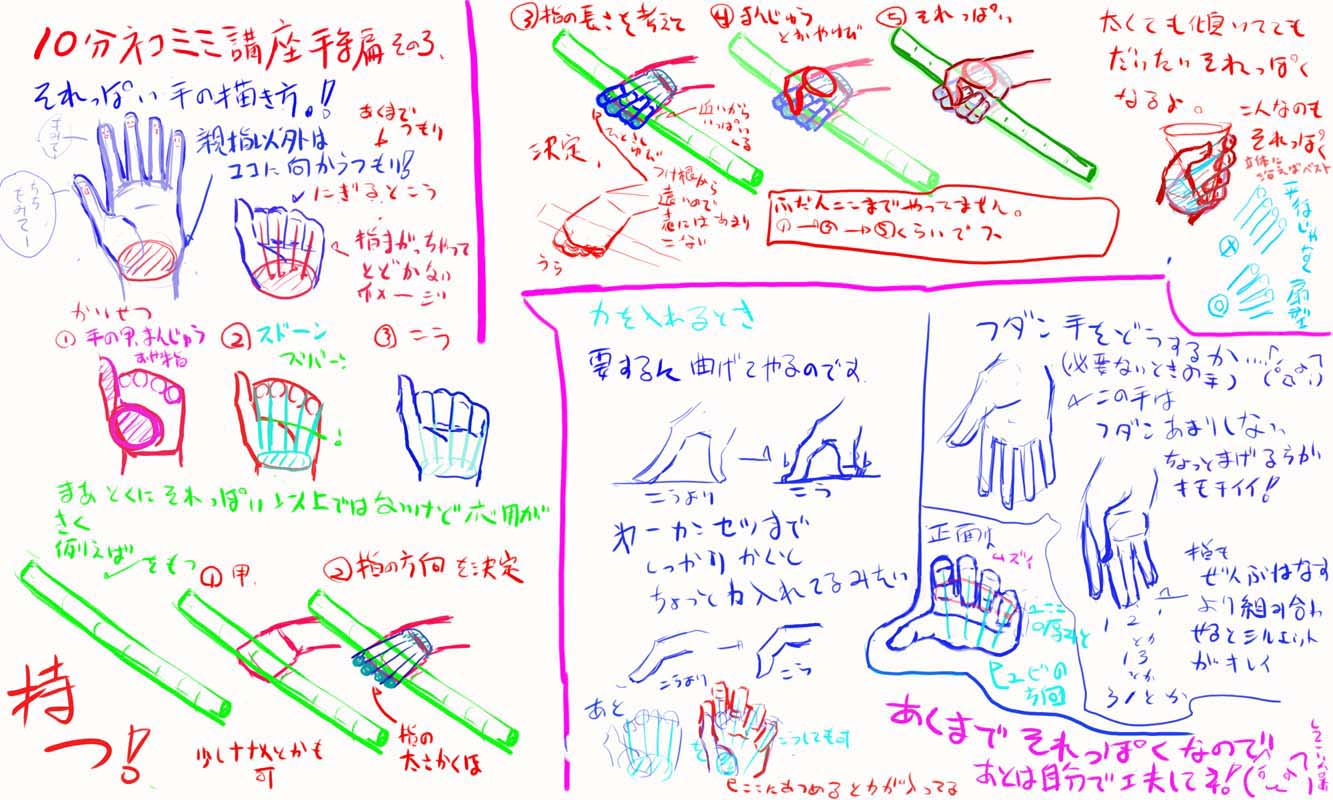 10分ネコミミ講座 手編 その3、
それっぽい手の描き方。!!
親指以外は
ココに向かうつもり!!
あくまで
つもり
にぎるとこう
指まがっちゃって
とどかない
イメージ
かいせつ
① 手の甲、まんじゅう
おや指
② スドーン
ズバー!
③ こう
まあ とくにそれっぽい以上ではないけど応用が
きく
例えば
をもつ
① 甲.
② 指の方向を決定
持
つ!!
少しナナメとかも
可
指の
太さかくほ
③ 指の長さを考えて
決定、
近いから
いっぱい
くる
ひとさしゆび
つけ根から
遠いので
表にはあまり
こない
うら
④ まんじゅう
とかやれば
⑤ それっぽい
ふだんここまでやってません。
①→②→⑤くらいでス
太くても傾いてても
だいたいそれっぽく
なるよ。
こんなのも
それっぽく
立体に
沿えばベスト
平行じゃなく
扇型
力を入れるとき
要するに曲げてやるのです
こうより
こう
第一カンセツまで
しっかりかくと
ちょっと力入れてるみたい
こうより
こう
あと
を
こうしても可
ここにあつめると力が入ってる
フダン手をどうするか…
(必要ないときの手)
この手は
フダンあまりしない。
ちょっとまげるほうが
キモチイイ!
正面は
ムズイ
ここ
の厚みと
ユビの
方向
1 2
とか
13
とか
31とか
指も
ぜんぶはなす
より組み合わ
せるとシルエット
がキレイ
あくまでそれっぽくなので!!
あとは自分で工夫してネ!